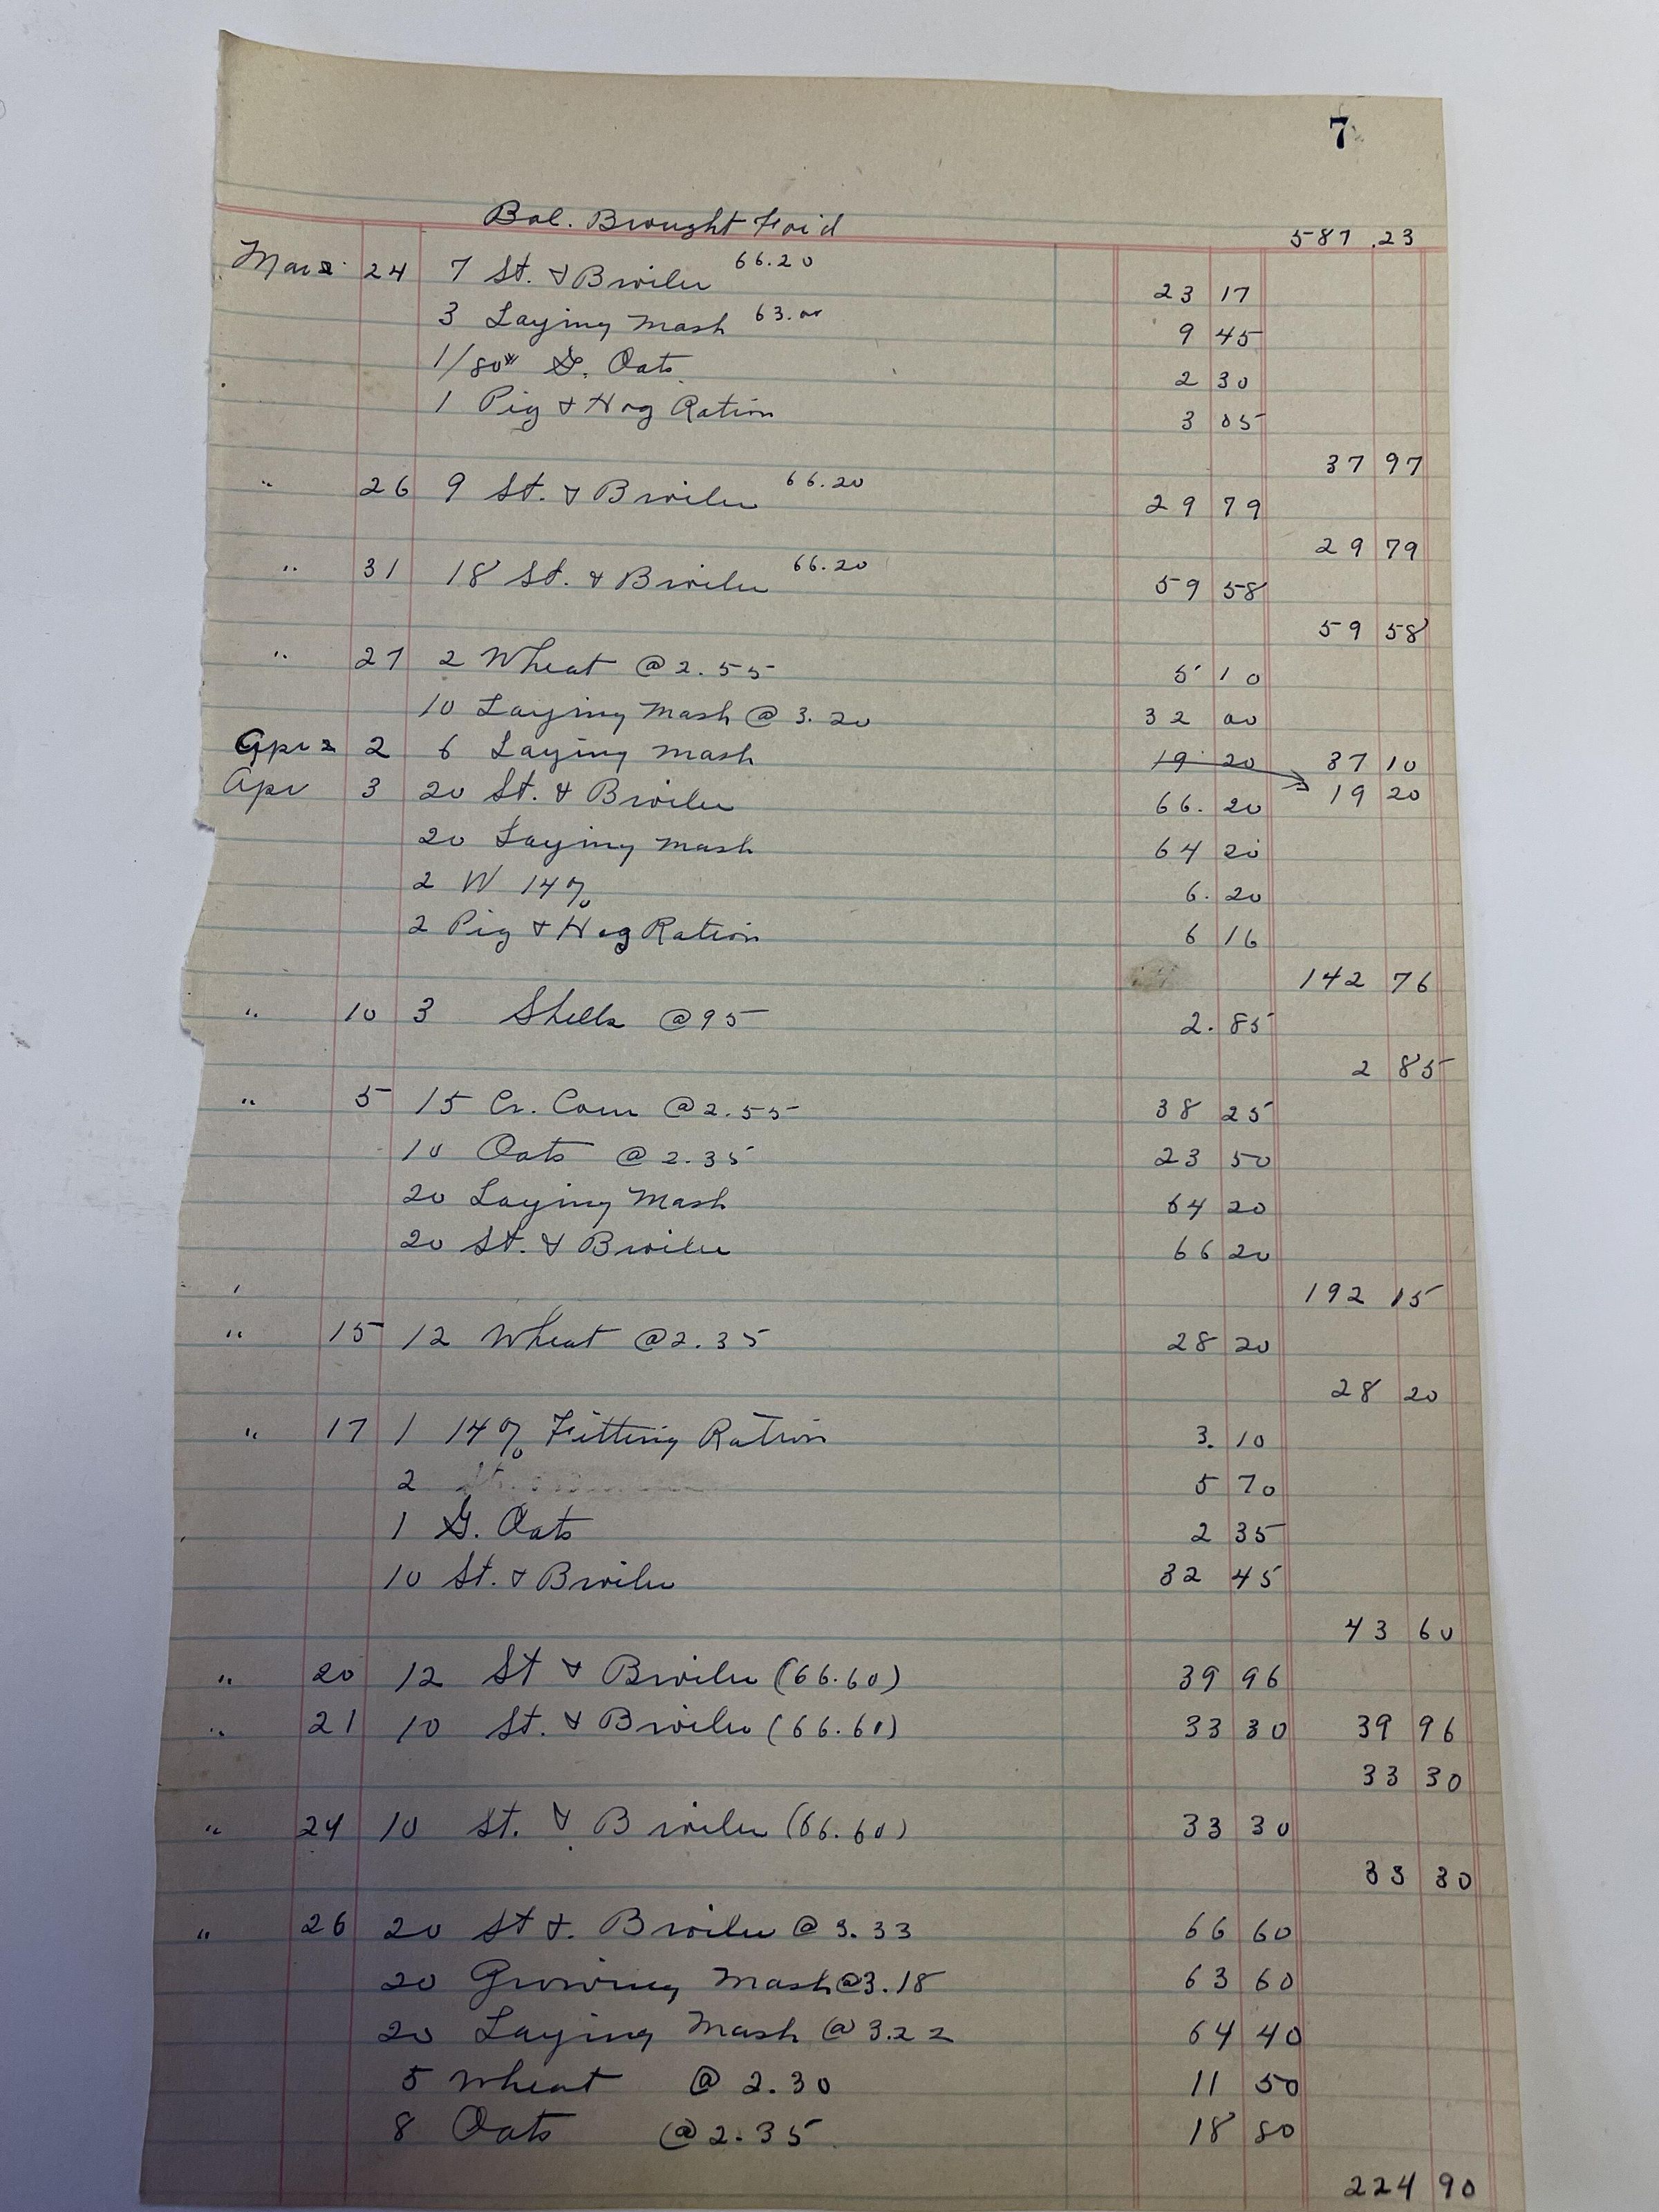 7
Bal. Brought For'd 587.23
Mar 24 7 St. & Broiler 66.20 23 17
3 Laying Mash 63.00 9 45
1/80# G. Oats 2 30
1 Pig & Hog Ration 3 05
37 97
" 26 9 St. & Broiler 66.20 29 79
29 79
" 31 18 St. & Broiler 66.20 59 58
59 58
" 27 2 Wheat @ 2.55 5 10
10 Laying Mash @ 3.20 32 00
Apr 2 6 Laying Mash 19 20 37 10
Apr 3 20 St. & Broiler 66.20 19 20
20 Laying Mash 64 20
2 W 14% 6.20
2 Pig & Hog Ration 6 16
142 76
" 10 3 Shells @ 95 2.85
2 85
" 5 15 Cr. Corn @ 2.55 38 25
10 Oats @ 2.35 23 50
20 Laying Mash 64 20
20 St. & Broiler 66 20
192 15
" 15 12 Wheat @ 2.35 28 20
28 20
" 17 1 14% Fitting Ration 3.10
2 5 70
1 G. Oats 2 35
10 St. & Broiler 32 45
43 60
" 20 12 St & Broiler (66.60) 39 96
" 21 10 St. & Broiler (66.60) 33 30 39 96
33 30
" 24 10 St. & Broiler (66.60) 33 30
33 30
" 26 20 St &. Broiler @ 3.33 66 60
20 Growing Mash @ 3.18 63 60
20 Laying Mash @ 3.22 64 40
5 Wheat @ 2.30 11 50
8 Oats @ 2.35 18 80
224 90